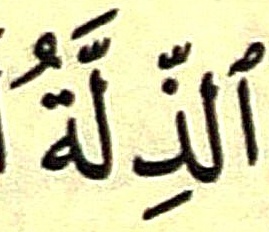 ٱلذِّلَّةُ